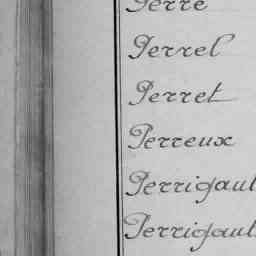 Perre
Perrel
Perret
Perreux
Perrigaul
Perrigaul